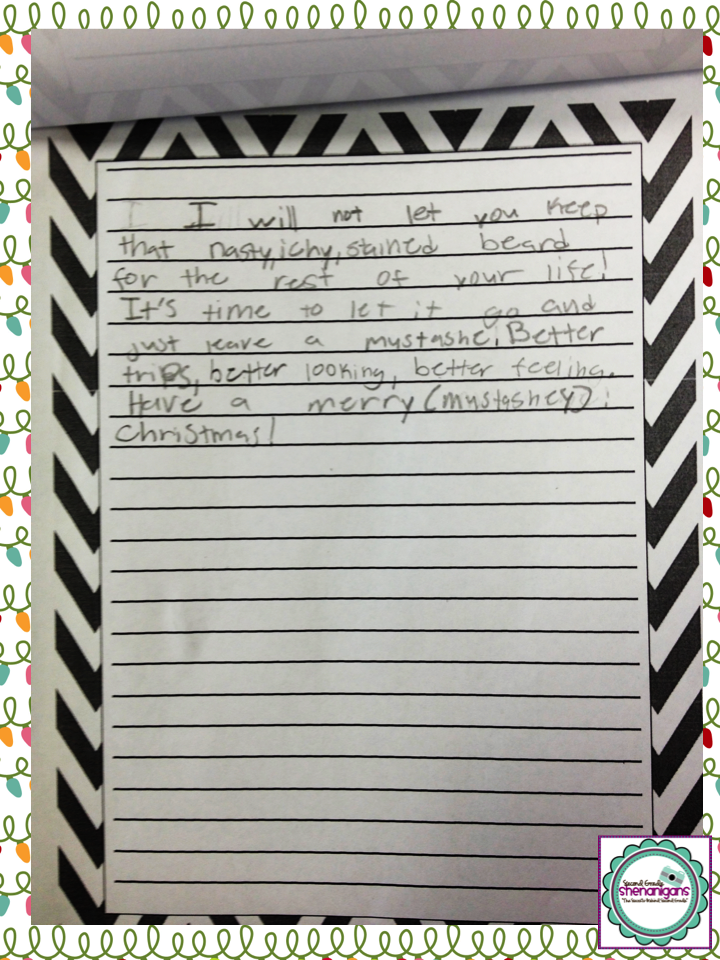 I will not let you keep
that nasty, ichy, stained beard
for the rest of your life!
It's time to let it go and
just leave a mystashe. Better
trips, better looking, better feeling.
Have a merry (mystashey)
christmas!
Second Grade
shenanigans
"The Secrets Behind Second Grade"